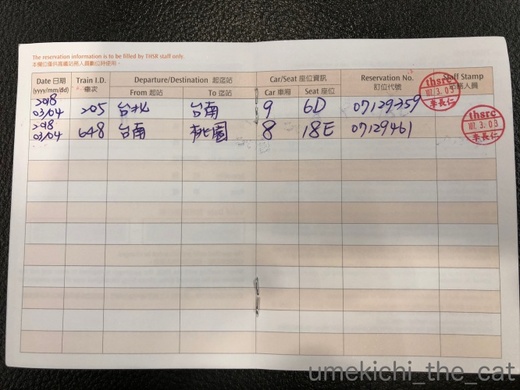 The reservation information is to be filled by THSR staff only.
本欄位僅供高鐵站務人員劃位時使用。
Date 日期 Train I.D. Departure/Destination 起迄站 Car/Seat 座位資訊 Reservation No. Staff Stamp
(yyyy/mm/dd) 車次 From 起站 To 迄站 Car 車廂 Seat 座位 訂位代號 站務人員
2018
03/04 205 台北 台南 9 6D 07129359 thsrc 107. 3. 03 李長仁
2018
03/04 648 台南 桃園 8 18E 07129461 thsrc 107. 3. 03 李長仁
umekichi_the_cat